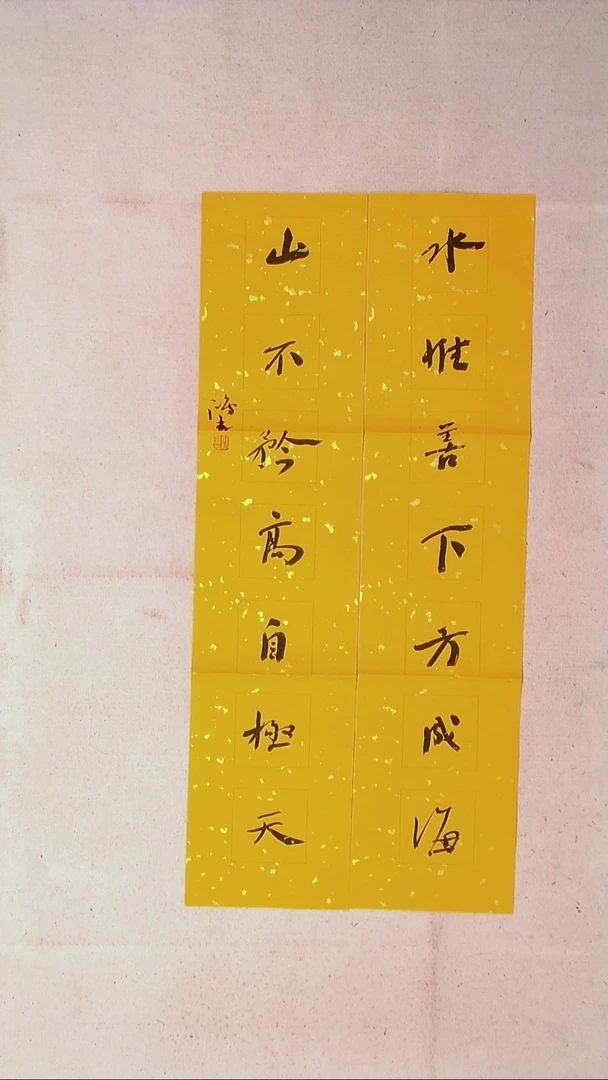 水惟善下方成海
山不矜高自極天